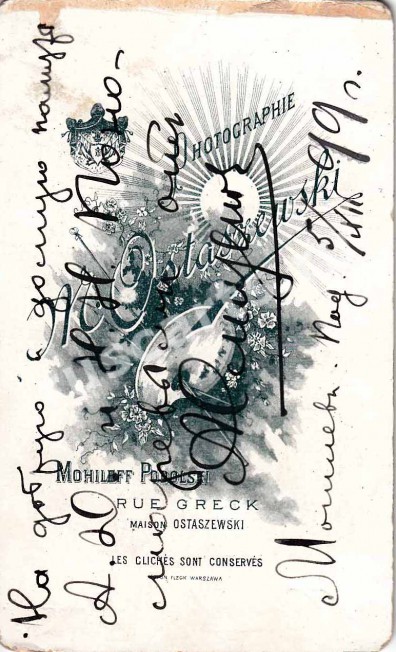 PHOTOGRAPHIE
M. Ostaszewski
MOHILEFF PODOLSKI
RUE GRECK
MAISON OSTASZEWSKI
LES CLICHÉS SONT CONSERVÉS
WARSZAWA
На добрую и долгую память
А. Ю. и Н. Н. Поно-
от
Могилевъ. Под. 5/VIII 99 г.